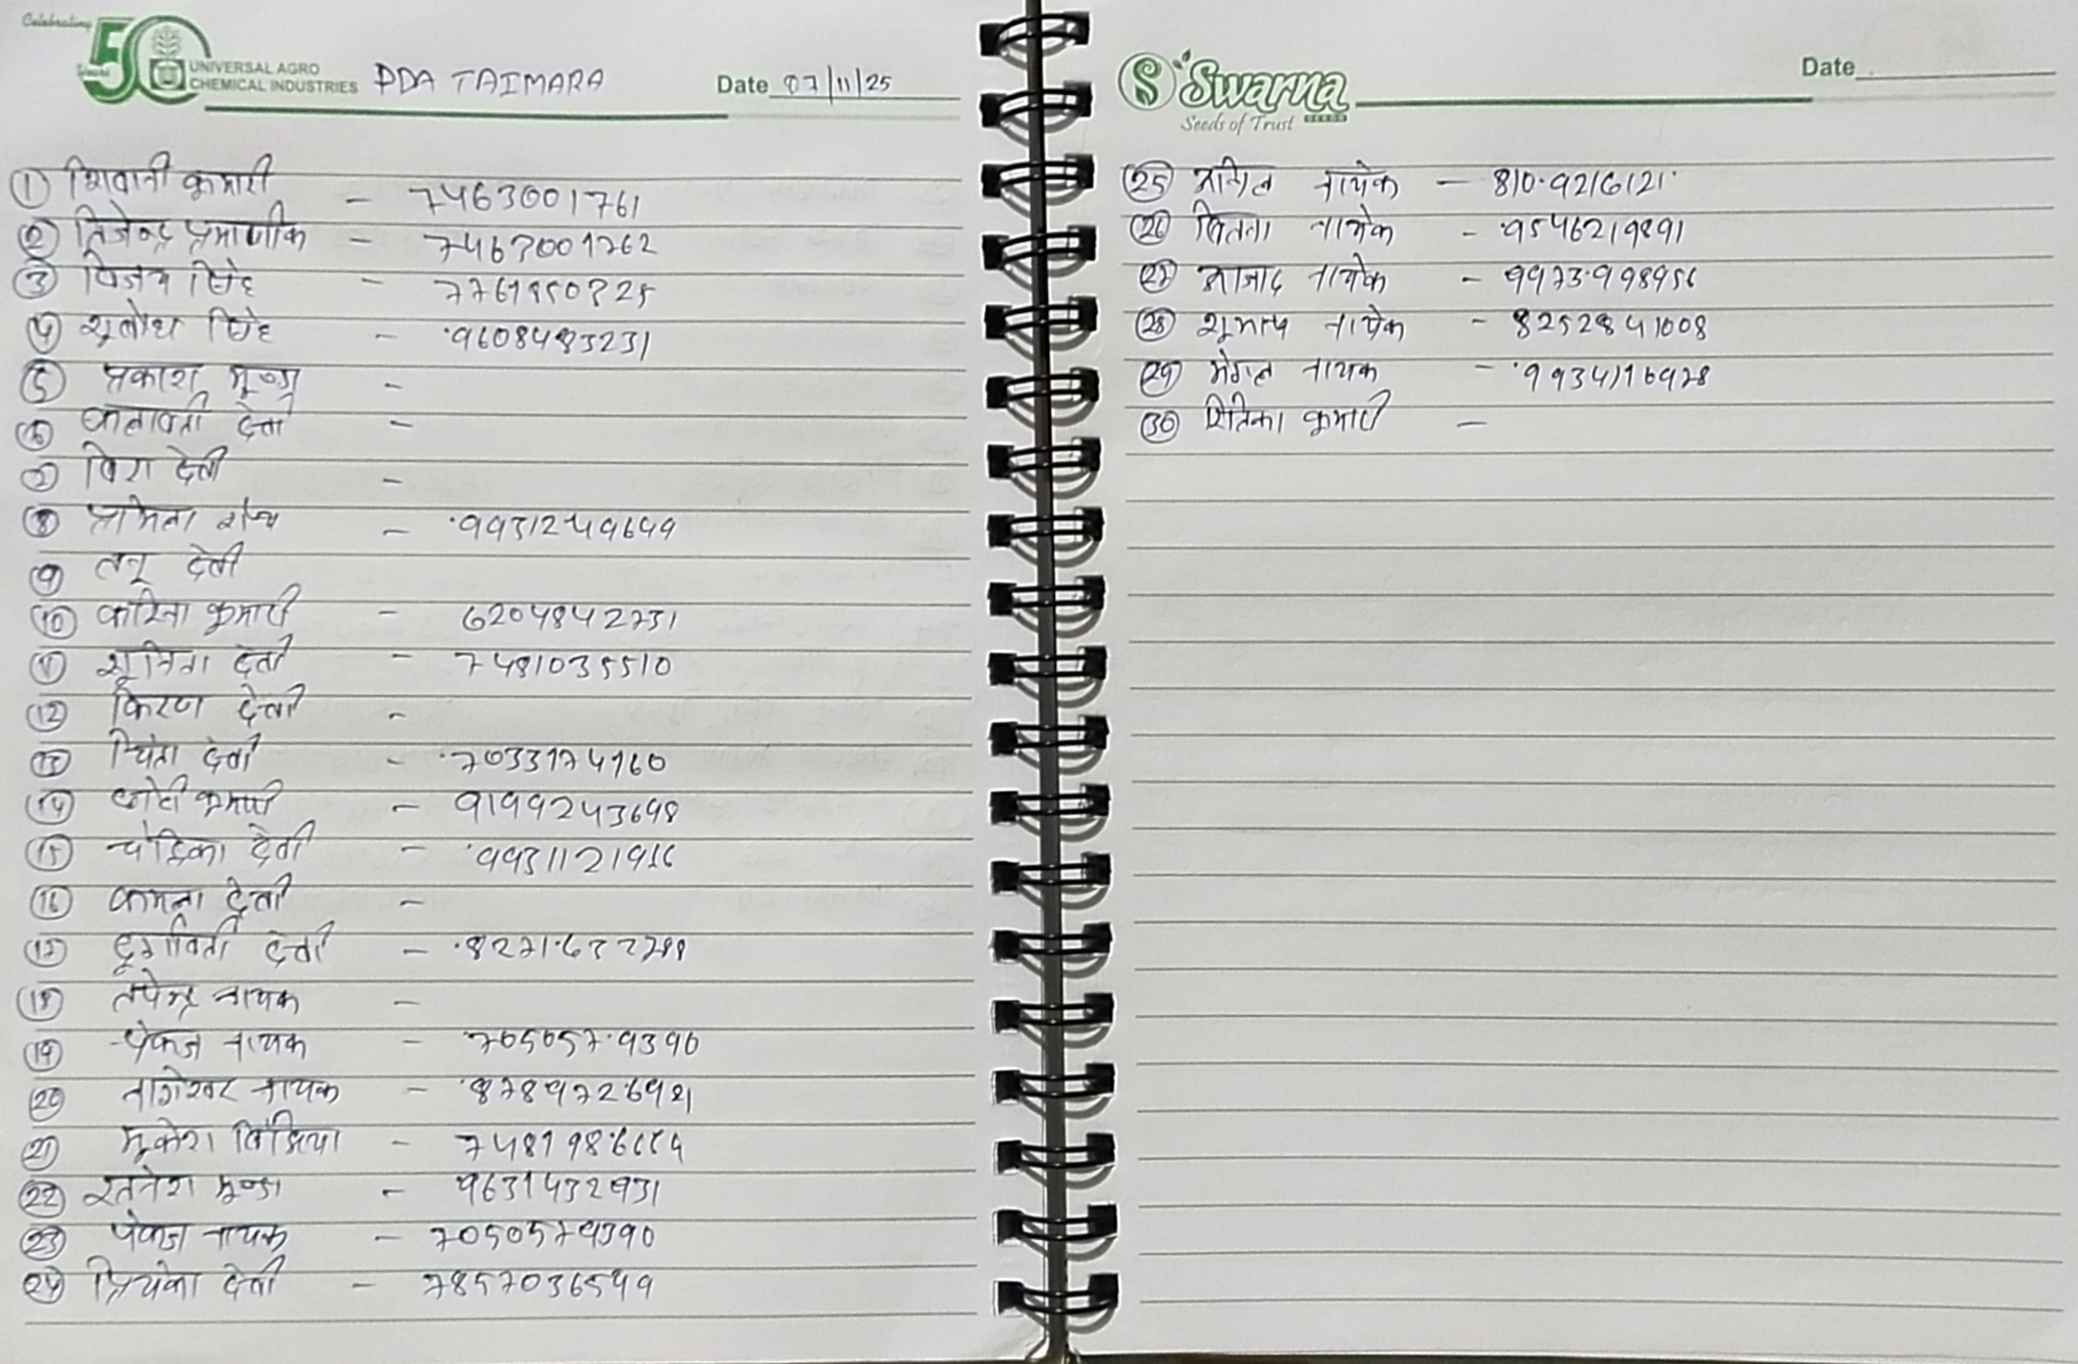 Celebrating
50
Years
UNIVERSAL AGRO
CHEMICAL INDUSTRIES PDA TAIMARA Date 07/11/25
① शिवानी कुमारी - 7463001761
② प्रमाणीक - 7463001762
③ विजय सिंह - 7761850325
④ सुबोध सिंह - 9608483231
⑤ प्रकाश मूण्डा -
⑥ कलावती देवी -
⑦ देवी -
⑧ - 9931249649
⑨ तनू देवी
⑩ कुमारी - 6204842731
⑪ सुमिता देवी - 7481035510
⑫ किरण देवी -
⑬ चिंता देवी - 7033174160
⑭ छोटी कुमारी - 9199243698
⑮ चंद्रिका देवी - 9931121956
⑯ कमला देवी -
⑰ दूर्गावती देवी -
⑱ नायक -
⑲ पंकज नायक - 7050579390
⑳ नागेश्वर नायक - 8789726921
㉑ मूकेश -
㉒ रतनेश मूण्डा - 9631432931
㉓ पंकज नायक - 7050579390
㉔ प्रियंका देवी - 7857036549
Swarna
SEEDS
Seeds of Trust
Date
㉕ अनिल नायक - 8109216121
㉖ नायक - 9546219891
㉗ आजाद नायक - 9973998956
㉘ नायक - 8252841008
㉙ मंगल नायक - 9934116928
㉚ रितिका कुमारी -